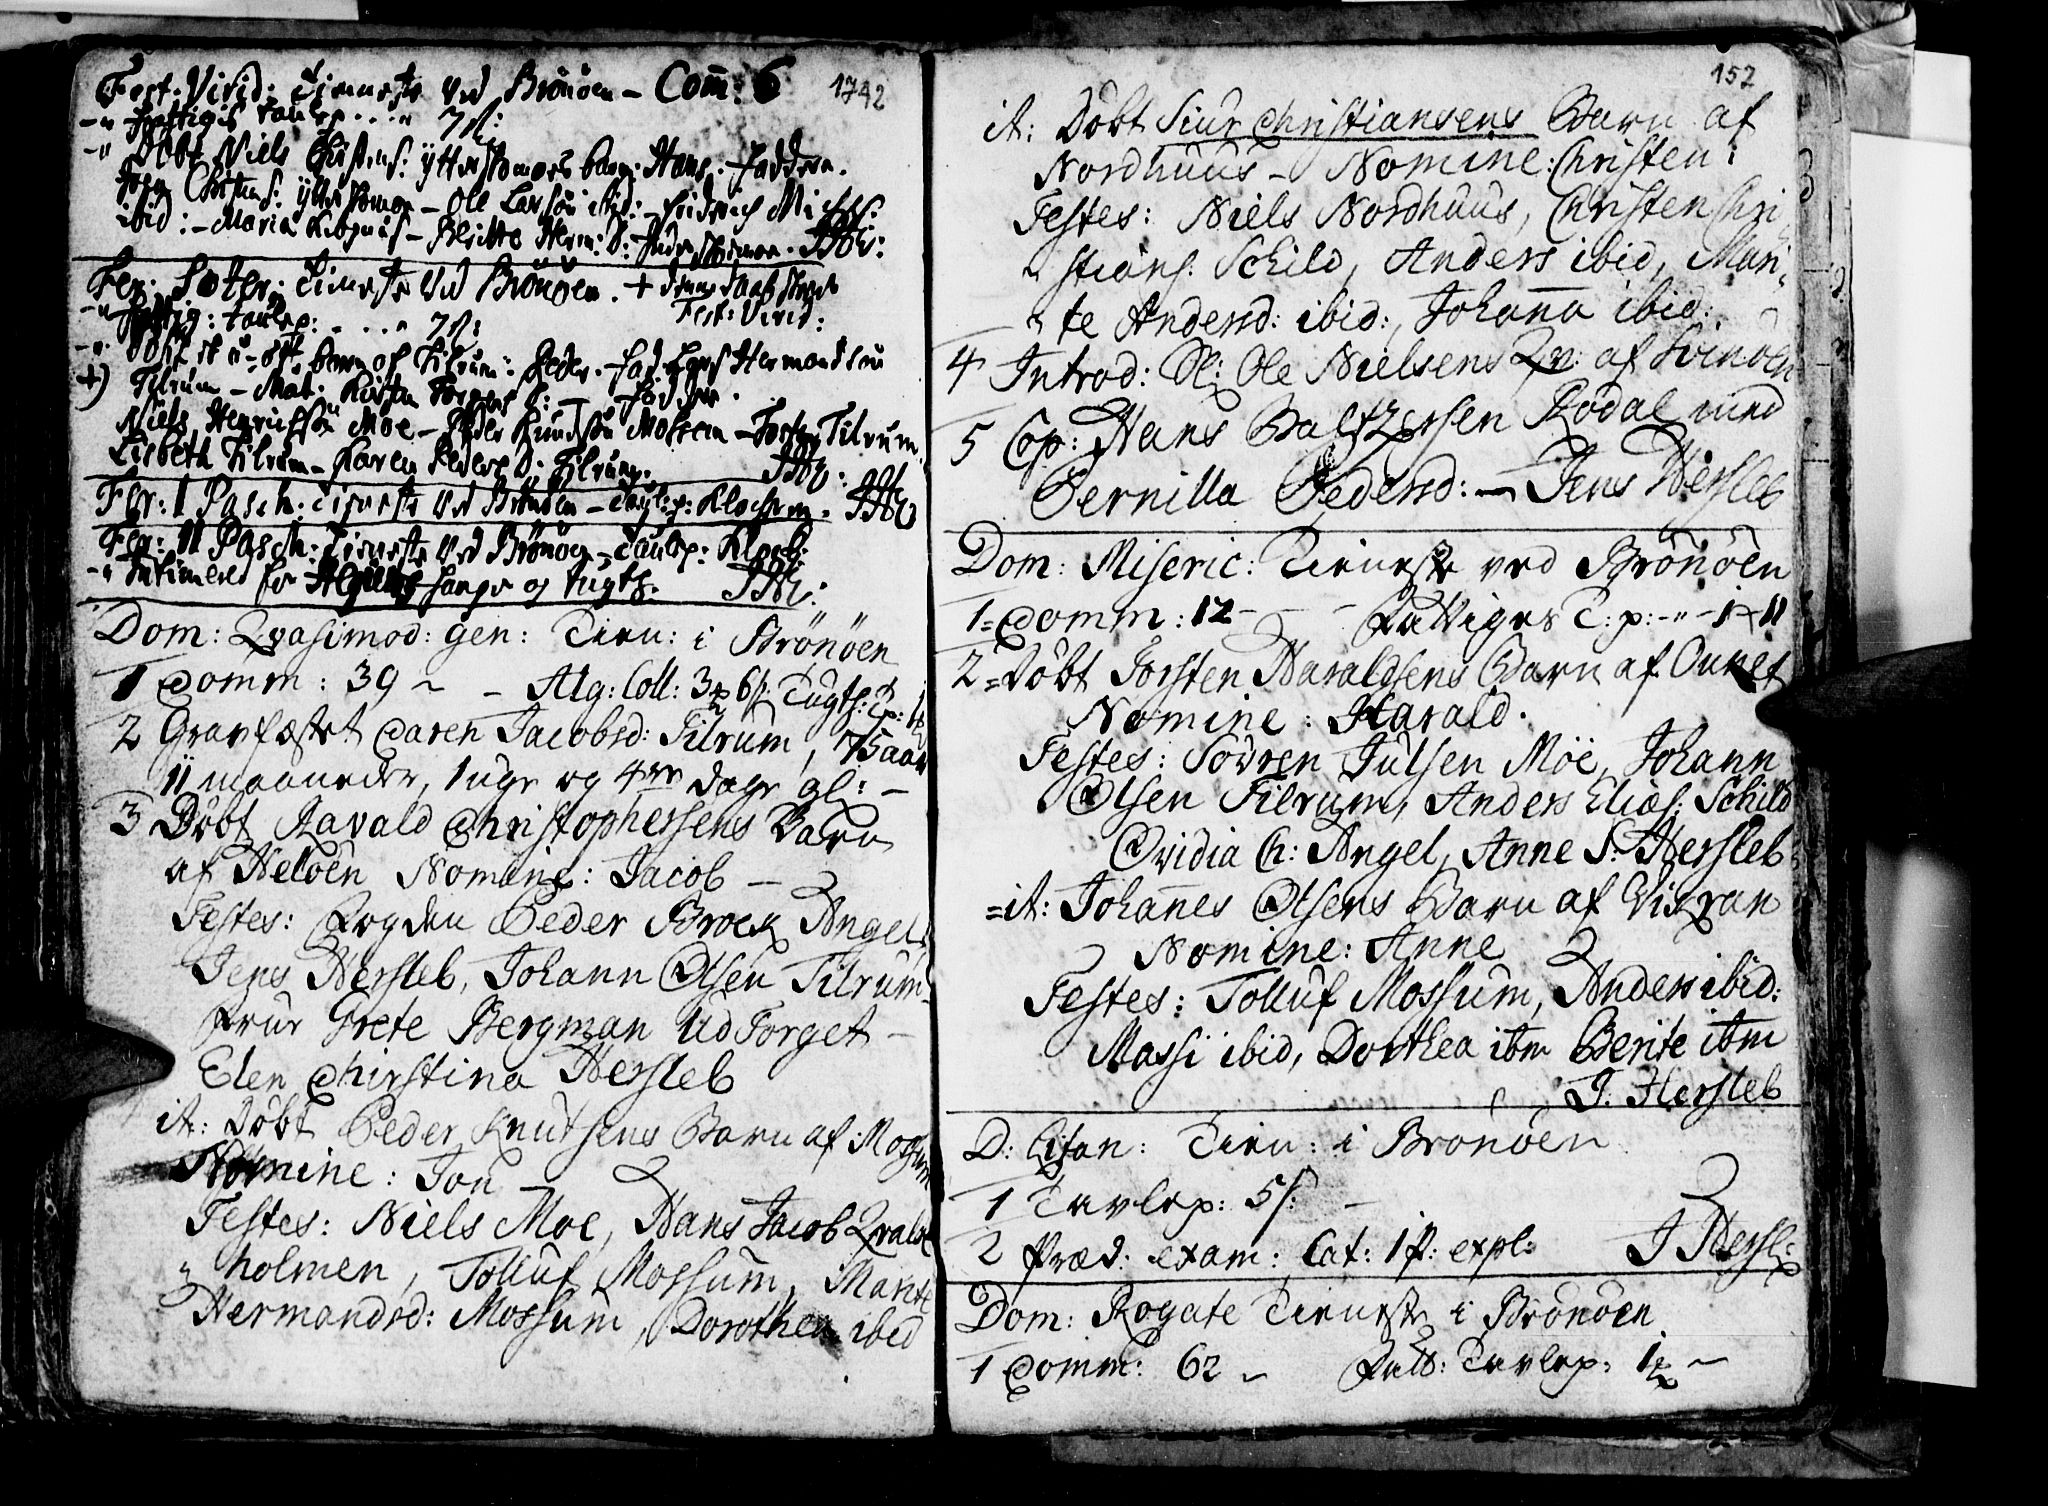 Fest: Virid: Tieneste ved Brönöen - Com̄: 6 1742
-" fattigis tavlep: . . . " 7 s:
-" Döbt Niels Christens: Ytterstomoes barn: Hans. Faddere.
Christens: - Ole Larsön ibid: - Fridrich Michls:
ibid: - Maria - Beritte Herm: D:
Fer: Tieneste Ved Brönöen. + denne daab skeede
Fest: Virid:
-" fattig: tavlep: - . . " 7 s:
barn af Tilrum: Peder. Fad: Lars Hermandsön
+) Tilrum - Mat: Kirsten D: - Faddere.
Niels Henrichsön Moe - Peder Knudsön Mosem - Tilrum.
Lisbeth Tilrum - Karen Peders D: Tilrum.
Fer: I Pasch: Tieneste Ved Brönöen - Tavl: p: Klochern.
Fer: II Pasch: Tieneste Ved Brönöen - Tavlep: Kloch:
-" Intimered for fange og tugts.
Dom: Qvasimod: gen: Tien: i Brönöen
1 Comm: 39 ~ - Alg: Coll: 3 6 s: Tugts: T: p:
2 Gravfæstet Caren Jacobsd: Tilrum, 75 aar
11 maaneder, 1 uge og 4re dage gl: -
3 Döbt Aavald Christophersens Barn
af Heloen Nomine: Jacob -
Testes: Fogden Peder Brock Angel,
Jens Hersleb, Johann Olsen Tilrum
Frue Grete Bergman Ud Torget -
Elen Christina Hersleb
it: Döbt Peder Knudsens Barn af Mossum
Nomine: Jon
Testes: Niels Moe, Hans Jacob Qvale
" holmen, Tolluf Mossum, Marite
Hermandsd: Mossum, Dorothea ibid
152
it: Döbt Siur Christiansens Barn af
Nordhuus - Nomine: Christen:
Testes: Niels Nordhuus, Christen Chri
" stians: Schild, Anders ibid, Mari
" te Andersd: ibid:, Johaña ibid:
4 Introd: Sl: Ole Nielsens Qv: af Tvinden
5 Cop: Hans Baltzersen Rödal med
Pernilla Pedersd: - Jens Hersleb
Dom: Miseric: Tieneste ved Brönöen
1 = Comm: 12 - - Fattiges T: p: - " - 1 11
2 = Döbt Torsten Haraldsens Barn af
Nomine: Harald.
Testes: Sövren Julsen Möe, Johann
Olsen Tilrum, Anders Elias: Schild
Ovidia Ch: Angel, Anne S: Hersleb
= it: Johañes Olsens Barn af Vikran
Nomine: Anne
Testes: Tolluf Mossum, Anders ibid:
Massi ibid, Dorthea ibm Berite ibm
J. Hersleb
D: Litan: Tien: i Brönöen
1 Tavlep: 5 s: -
2 Præd: exam: Cat: 1 p: expl: J Hersl:
Dom: Rogate Tieneste i Brönöen
1 Comm: 62 ~ Fatt: Tavlep: 1 ~